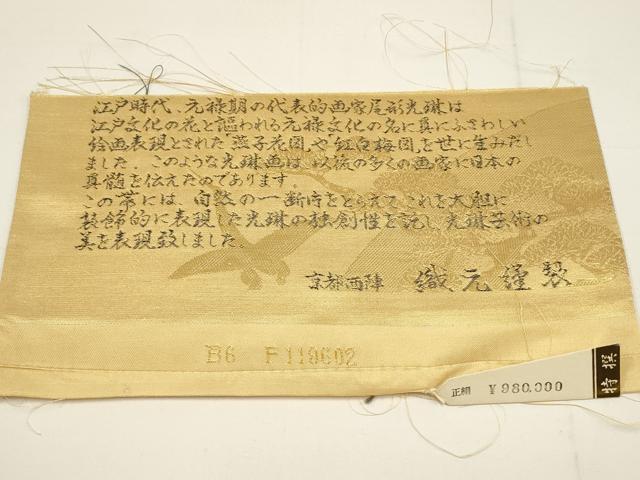 江戸時代、元禄期の代表的画家尾形光琳は
江戸文化の花と謳われる元禄文化の名に真にふさわしい
絵画表現とされた「燕子花図」や「紅白梅図」を世に生みだし
ました。このような光琳画は、以後の多くの画家に日本の
真髄を伝えたのであります。
この帯には、自然の一断片をとらえて、これを大胆に
装飾的に表現した光琳の独創性を託し、光琳芸術の
美を表現致しました。
京都西陣 織元謹製
B6 F119602
正絹 ¥980,000
特撰